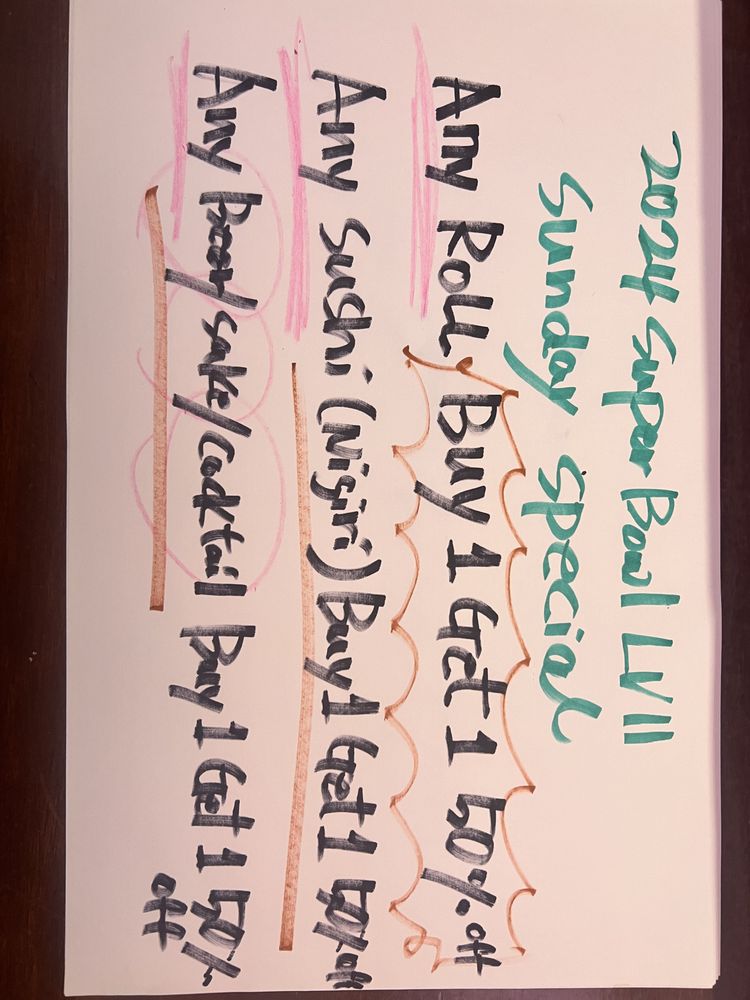 2024 Super Bowl LVII
Sunday Special
Any Roll Buy 1 Get 1 50% off
Any Sushi (Nigiri) Buy 1 Get 1 50% off
Any Beer/sake/Cocktail Buy 1 Get 1 50%
off